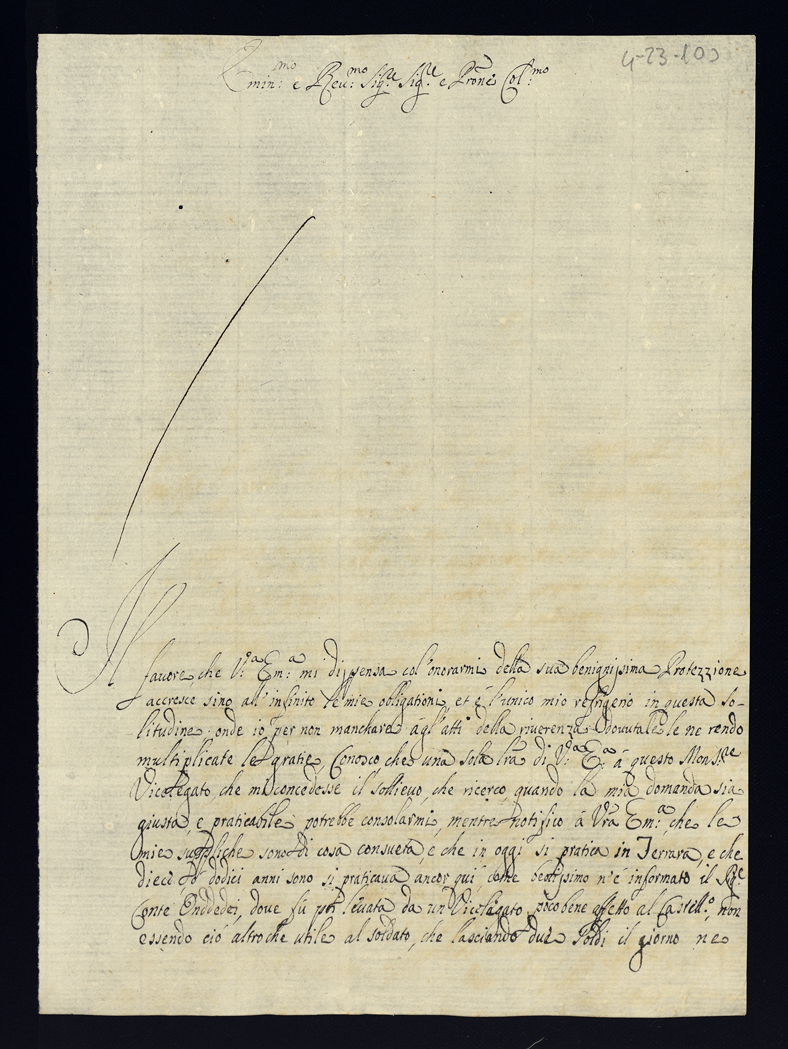 4-23-103
Emin:mo e Reu:mo Sig:re Sig:re e Prone Col:mo
Il
fauore che V:a Em:a mi dispensa col'onorarmi della sua benignissima Protezzione
accresce sino all'infinito le mie obligationi, et è l'unico mio refrigerio in questa so-
litudine: onde io per non manchare àgl'atti della riuerenza douutale le ne rendo
multiplicate le gratie, Conosco che una sola lra di V:a E:a à questo Mons:re
Vicelegato, che mi concedesse il sollieuo, che ricerco, quando la mia domanda sia
giusta, e praticabile potrebbe consolarmi, mentre notifico à Vra Em:a, che le
mie suppliche sono di cosa consueta, e che in oggi si pratica in Ferrara, e che
dieci ò dodici anni sono si praticaua ancor quì, come benissimo n'è informato il Sig:e
Conte Enddedei, doue fù poi leuata da un Vicelegato pocobene affetto al Castell:o, non
essendo ciò altro che utile al soldato, che lasciando due Soldi il giorno ne